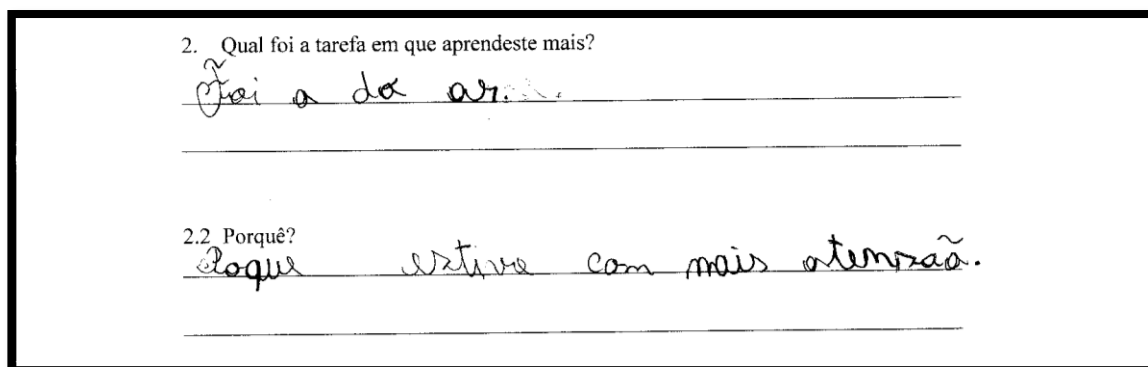 2. Qual foi a tarefa em que aprendeste mais?
Foi a do ar.
2.2 Porquê?
Poque estive com mais atensão.